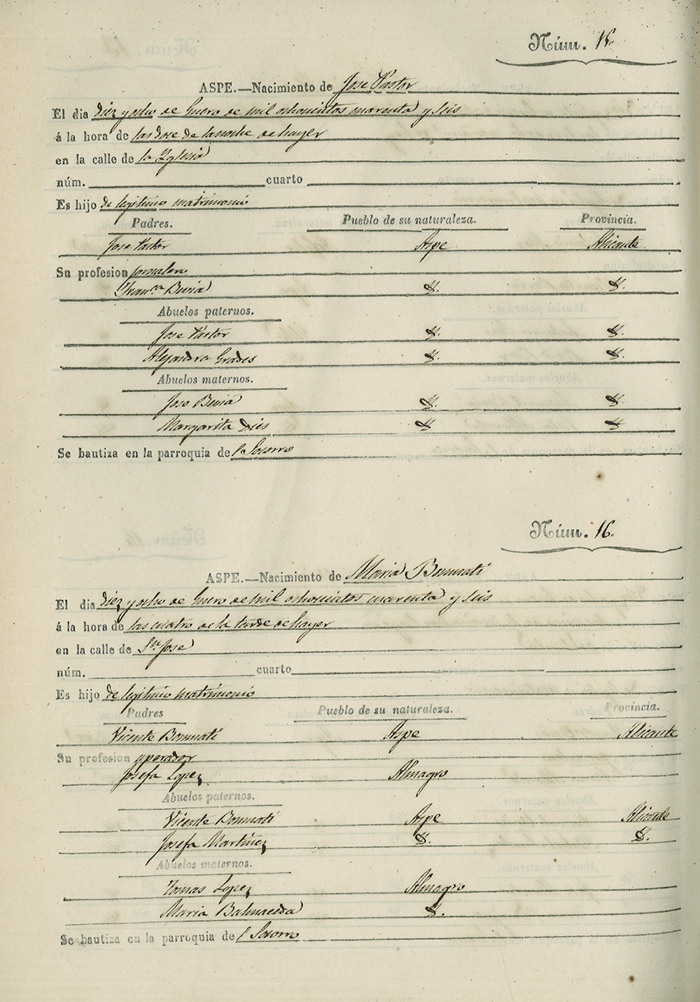 Núm. 15.
ASPE.—Nacimiento de Jose Pastor
El dia diez y ocho de Enero de mil ochocientos cuarenta y seis
á la hora de las doce de la noche de hayer
en la calle de la Yglesia
núm. cuarto
Es hijo de legitimo matrimonio
Padres. Pueblo de su naturaleza. Provincia.
Jose Pastor Aspe Alicante
Su profesion jornalero
Franca. 8. 8.
Abuelos paternos.
Jose Pastor 8. 8.
Alejandra 8. 8.
Abuelos maternos.
Jose 8. 8.
Margarita Dies 8. 8.
Se bautiza en la parroquia de l Socorro
Núm. 16.
ASPE.—Nacimiento de Maria Bonmati
El dia diez y ocho de Enero de mil ochocientos cuarenta y seis
á la hora de las cuatro de la tarde de hayer
en la calle de Sn. Jose
núm. cuarto
Es hijo de legitimo matrimonio
Padres Pueblo de su naturaleza. Provincia.
Vicente Bonmati Aspe Alicante
Su profesion aperador
Josefa Lopez Almagro
Abuelos paternos.
Vicente Bonmati Aspe Alicante
Josefa Martinez 8. 8.
Abuelos maternos.
Tomas Lopez Almagro
Maria Balmaceda 8.
Se bautiza en la parroquia de l Socorro